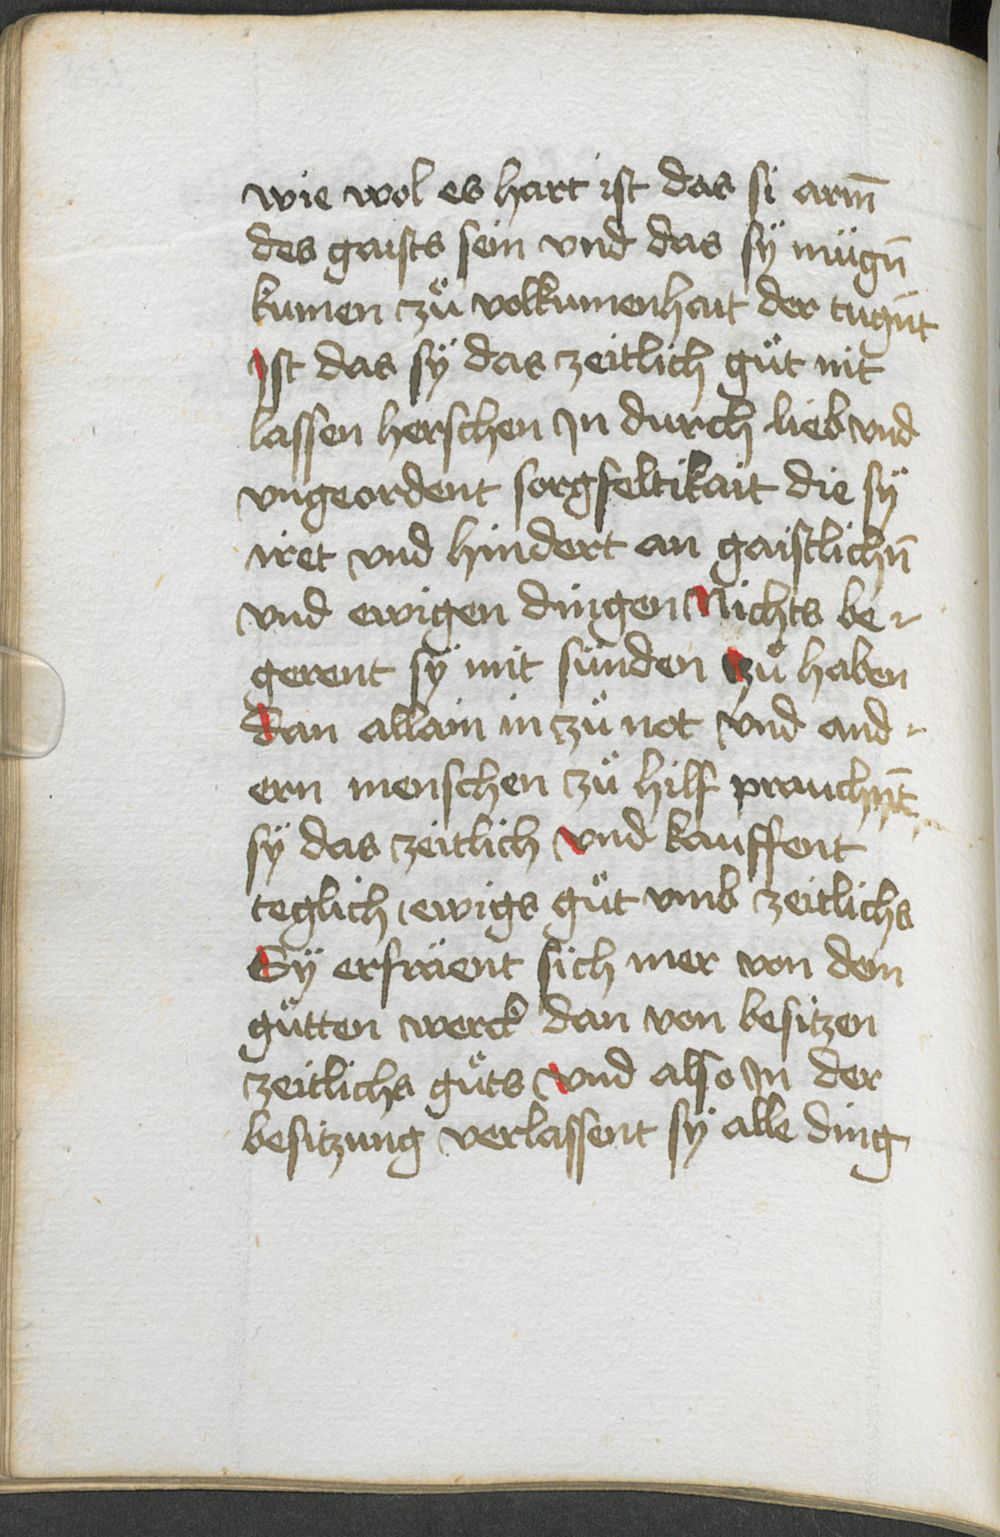 wie wol es hart ist das si arm̄
des gaists sein vnd das sÿ mügn̄
kumen zuͦ volkumenhait der tugnt̄
Ist das sÿ das zeitlich guͦt nit
lassen herschen In durch lieb vnd
vngeordent sorgfeltikait die sÿ
irret vnd hindert an gaistlichn̄
vnd ewigen dingen Nichts be-
gerent sÿ mit sünden zuͦ haben
dan allain in zuͦ not vnd and-
ern menschen zuͦ hilf prauchnt̄
sÿ das zeitlich vnd kauffent
teglich ewigs guͦt vmb zeitlichs
Sÿ erfräent sich mer von dem
guͦtten werck dan von besitzen
zeitlichs guͦts vnd also In der
besitzung verlassent sÿ alle ding